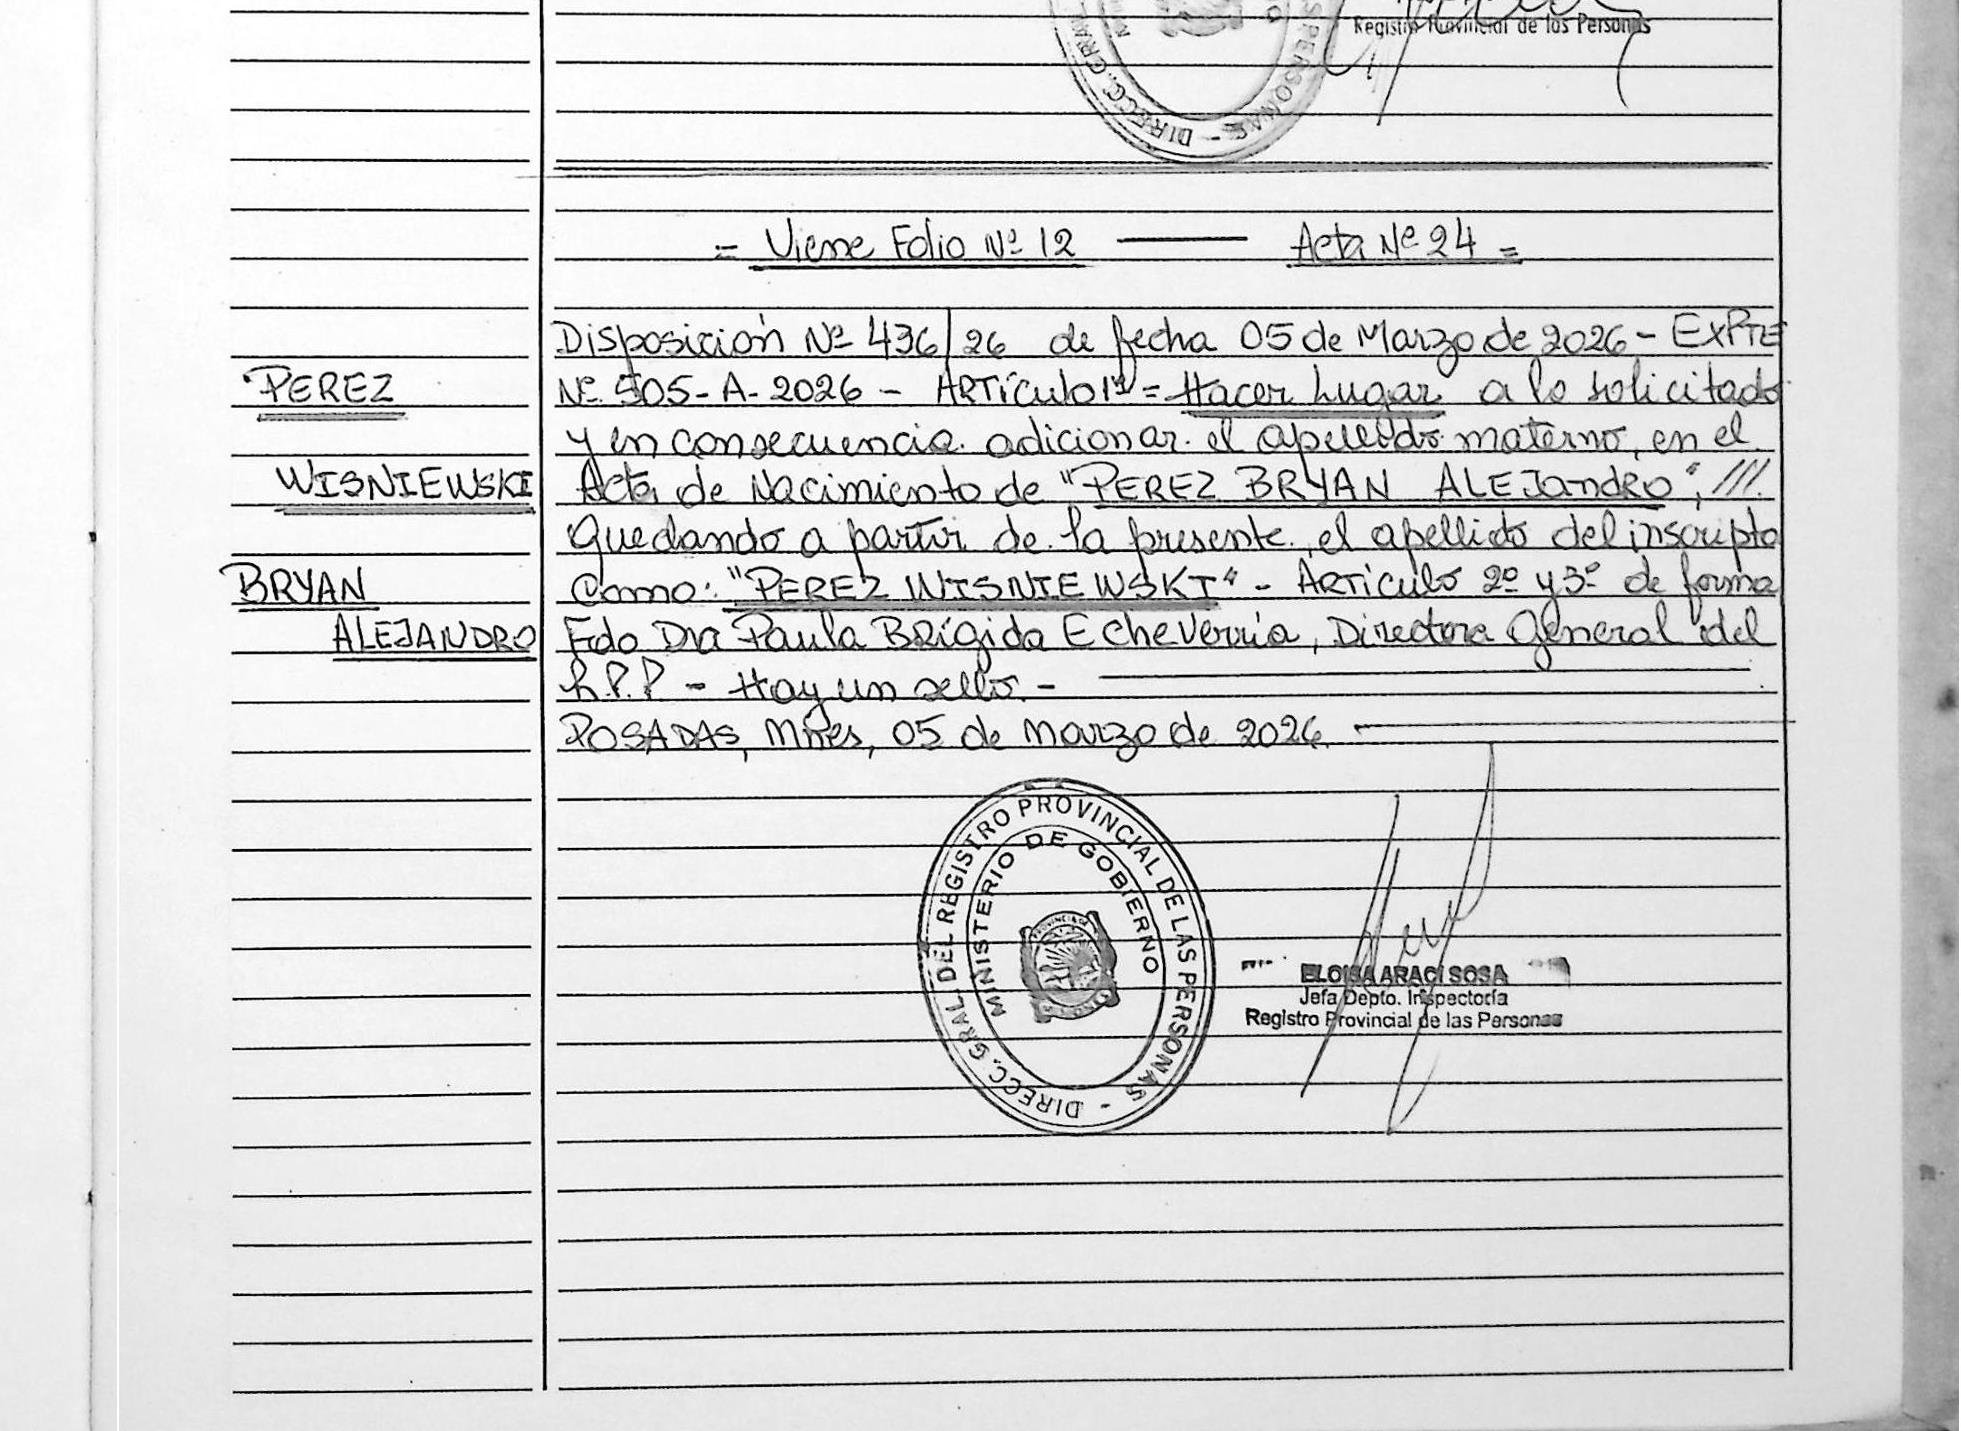 Registro Provincial de las Personas
DIRECC. GRAL. PERSONAS -
= Viene Folio Nº 12 — Acta Nº 24 =
Disposición Nº 436/26 de fecha 05 de Marzo de 2026 - EXPTE
PEREZ
Nº 505-A-2026 - ARTÍCULO 1º = Hacer Lugar a lo solicitado
y en consecuencia adicionar el apellido materno, en el
WISNIEWSKI
Acta de Nacimiento de "PEREZ BRYAN ALEJandRO", ///.
Quedando a partir de la presente, el apellido del inscripto
BRYAN
Como: "PEREZ WISNIEWSKI" - ARTÍCULO 2º y 3º de forma
ALEJANDRO
Fdo Dra Paula Brígida Echeverria, Directora General del
R.P.P - Hay un sello -
POSADAS, Mnes, 05 de Marzo de 2026
DIRECC. GRAL. DEL REGISTRO PROVINCIAL DE LAS PERSONAS -
MINISTERIO DE GOBIERNO
ELOISA ARACI SOSA
Jefa Depto. Inspectoría
Registro Provincial de las Personas